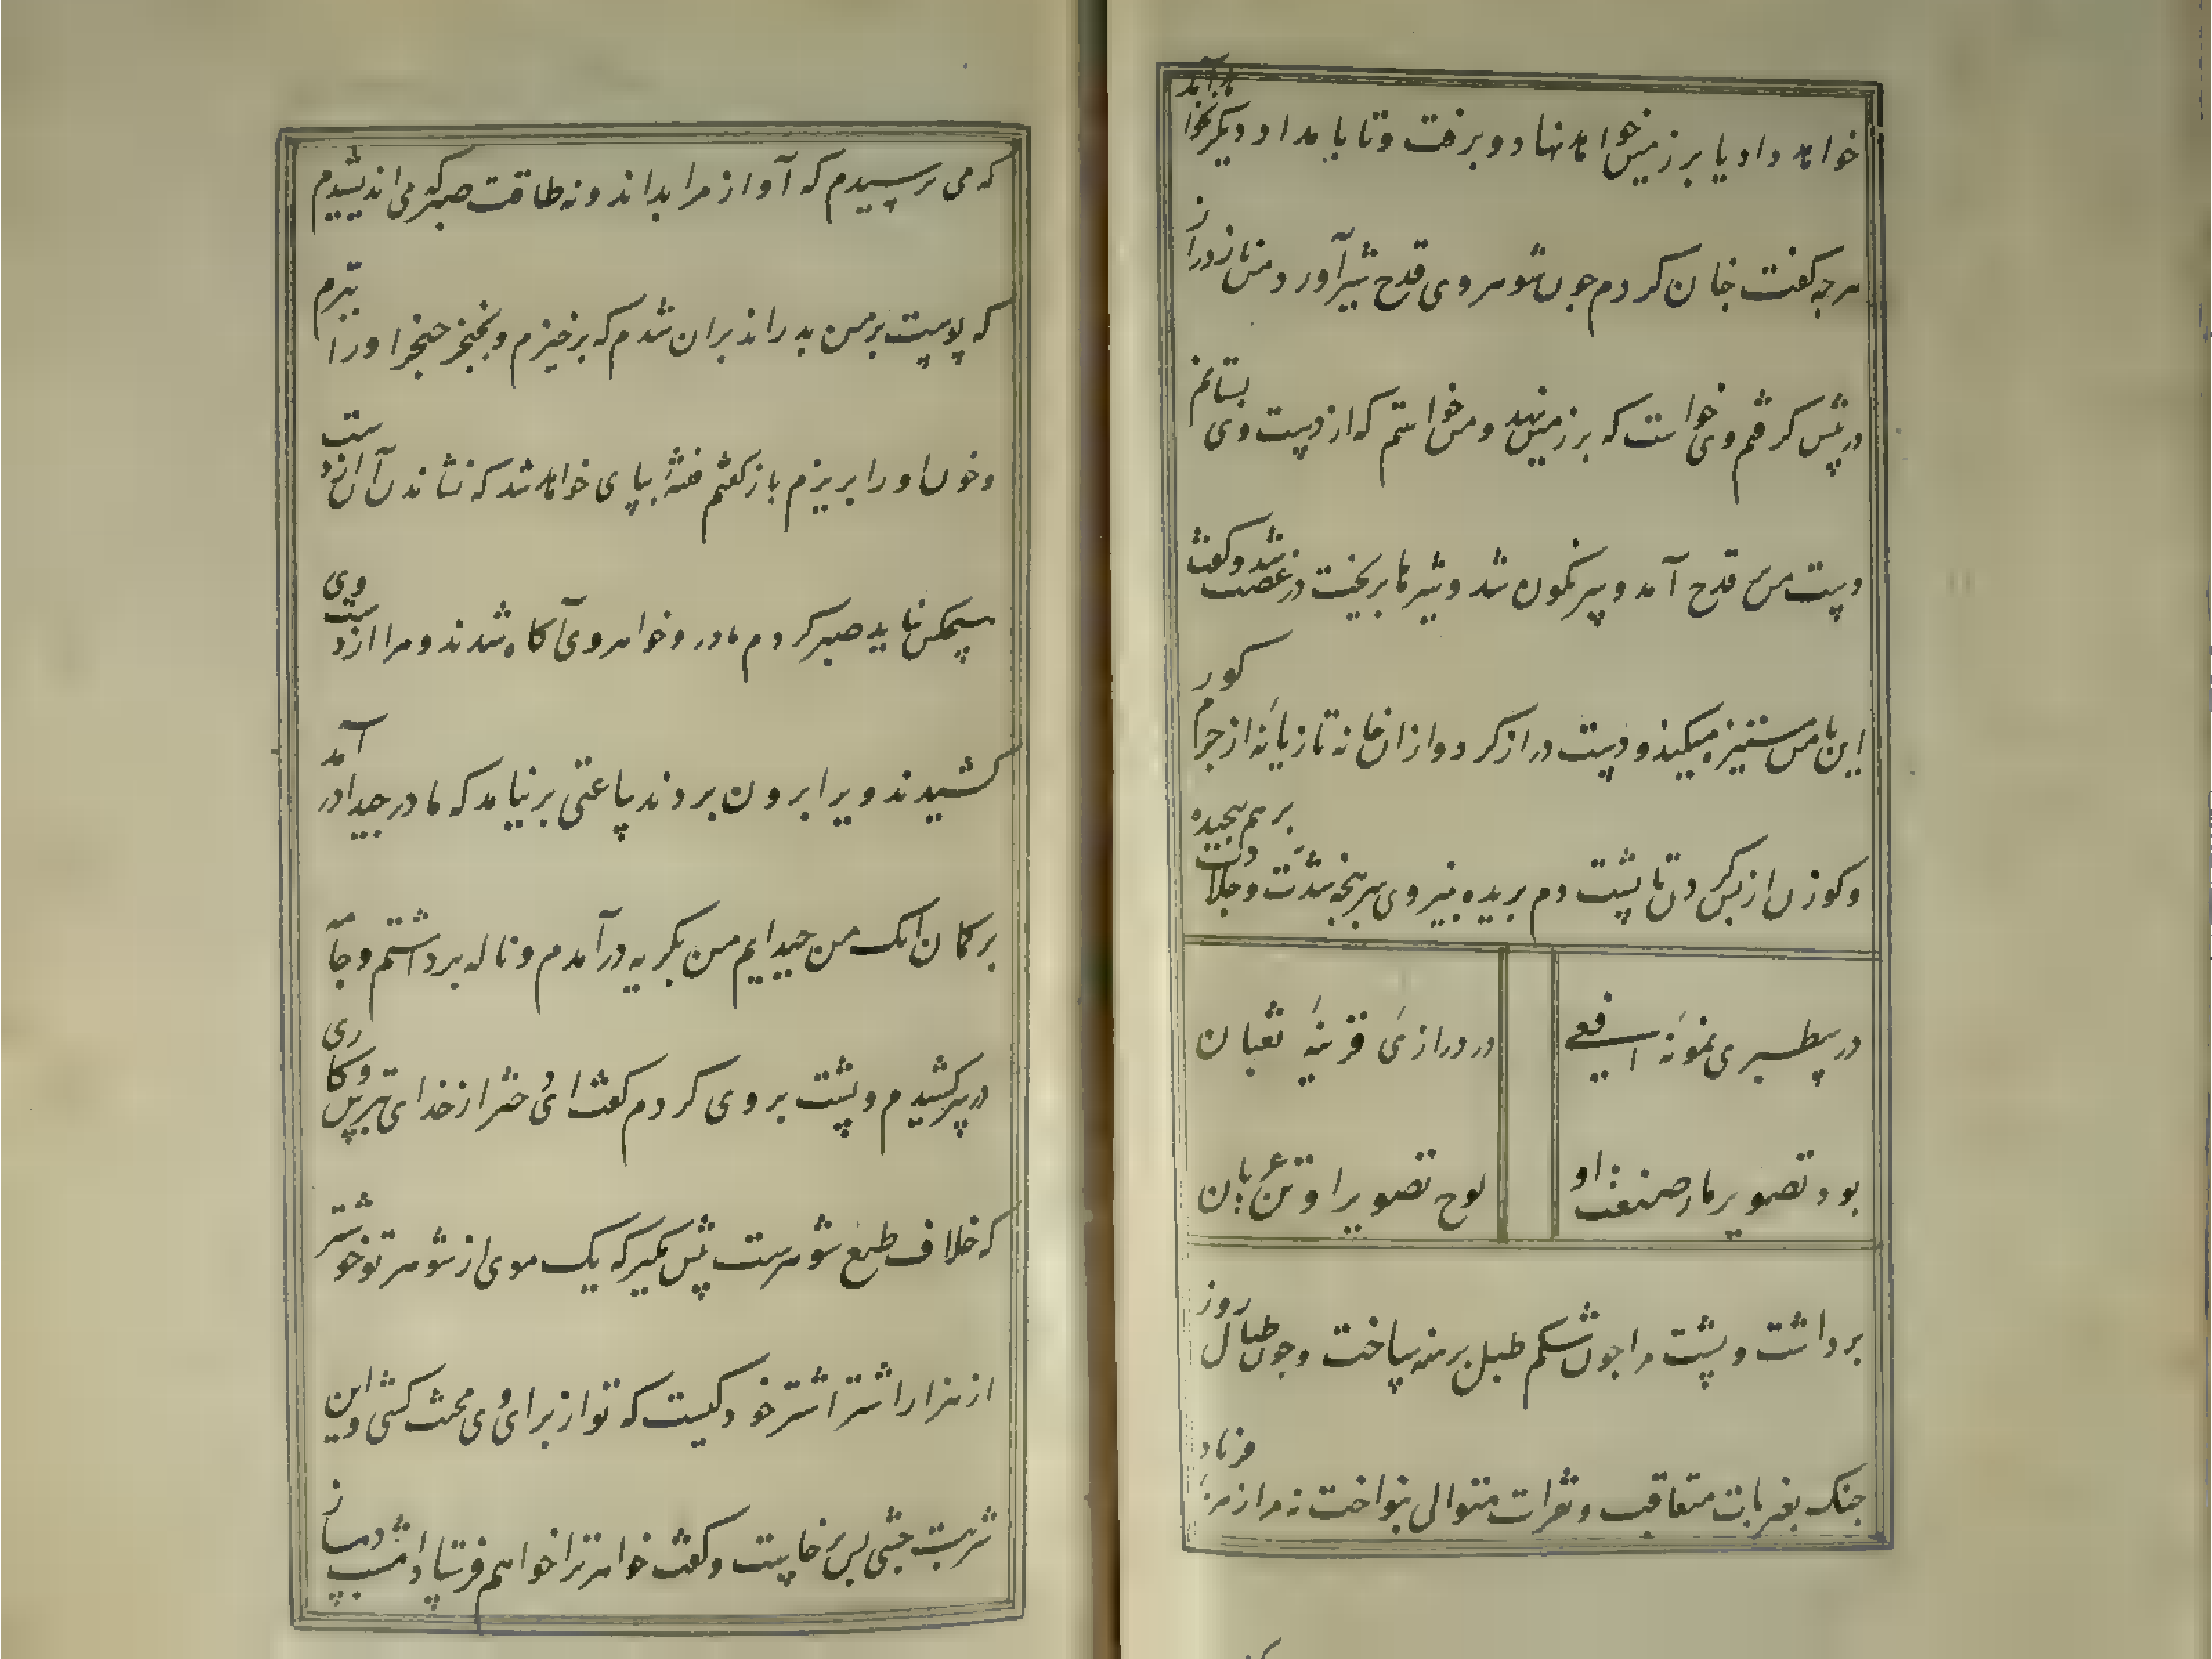 خواهد داد یا بر زمین خواهد نهاد و برفت و تا بامداد دیگر نخواهد آمد
هرچه گفت چنان کردم چون شوهر وی قدح شیر آورد من ناز دراز
در پیش گرفتم وی خواست که بر زمین نهد و من خواستم که از دست وی بستانم
دست من بر قدح آمد و سرنگون شد و شیرها بریخت در غضب شد و گفت
این با من ستیزه میکند و دست دراز کرد و از آن خانه تازیانه از چرم گور
و گوزن از پس گردن تا پشت دم بریده بنیروی سرپنجه شدت و جلادت برهم پیچیده
در سطبری نمونه افعی
در درازی قرینه ثعبان
بود تصویر مار صنعت او
لوح تصویر او تن عریان
برداشت و پشت مرا چون شکم طبل برهنه ساخت و چون طبال روز
جنگ بضربات متعاقب و نقرات متوالی بنواخت نه مرا زهره فریاد
که می ترسیدم که آواز مرا بداند و نه طاقت صبر که می اندیشیدم
که پوست بر من بدراند بر آن شدم که برخیزم و بخنجر حنجر او را ببرم
و خون او را بریزم باز گفتم فتنه بپای خواهد شد که نشاندن آن از دست
هیچکس نیاید صبر کردم مادر و خواهر وی آگاه شدند و مرا از دست وی
کشیدند و ویرا برون بردند ساعتی برنیامد که مادر جیدا درآمد
بر گمان آنک من جیدایم من بگریه درآمدم و ناله برداشتم و جامه
در سر کشیدم و پشت بر وی کردم گفت ای دختر از خدای بترس و کاری
که خلاف طبع شوهرست پیش مگیر که یک موی از شوهر تو خوشتر
از هزار اشتر اشتر خود کیست که تو از برای وی محنت کشی و این
شربت چشی پس برخاست و گفت خواهرترا خواهم فرستاد امشب دمساز